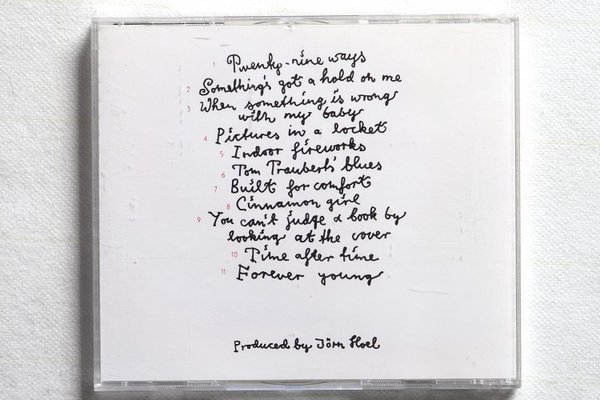 1 Twenty-nine ways
2 Something's got a hold on me
3 When something is wrong
with my baby
4 Pictures in a locket
5 Indoor fireworks
6 Tom Traubert' blues
7 Built for comfort
8 Cinnamon girl
9 You can't judge a book by
looking at the cover
10 Time after time
11 Forever young
Produced by Jörn Hoel